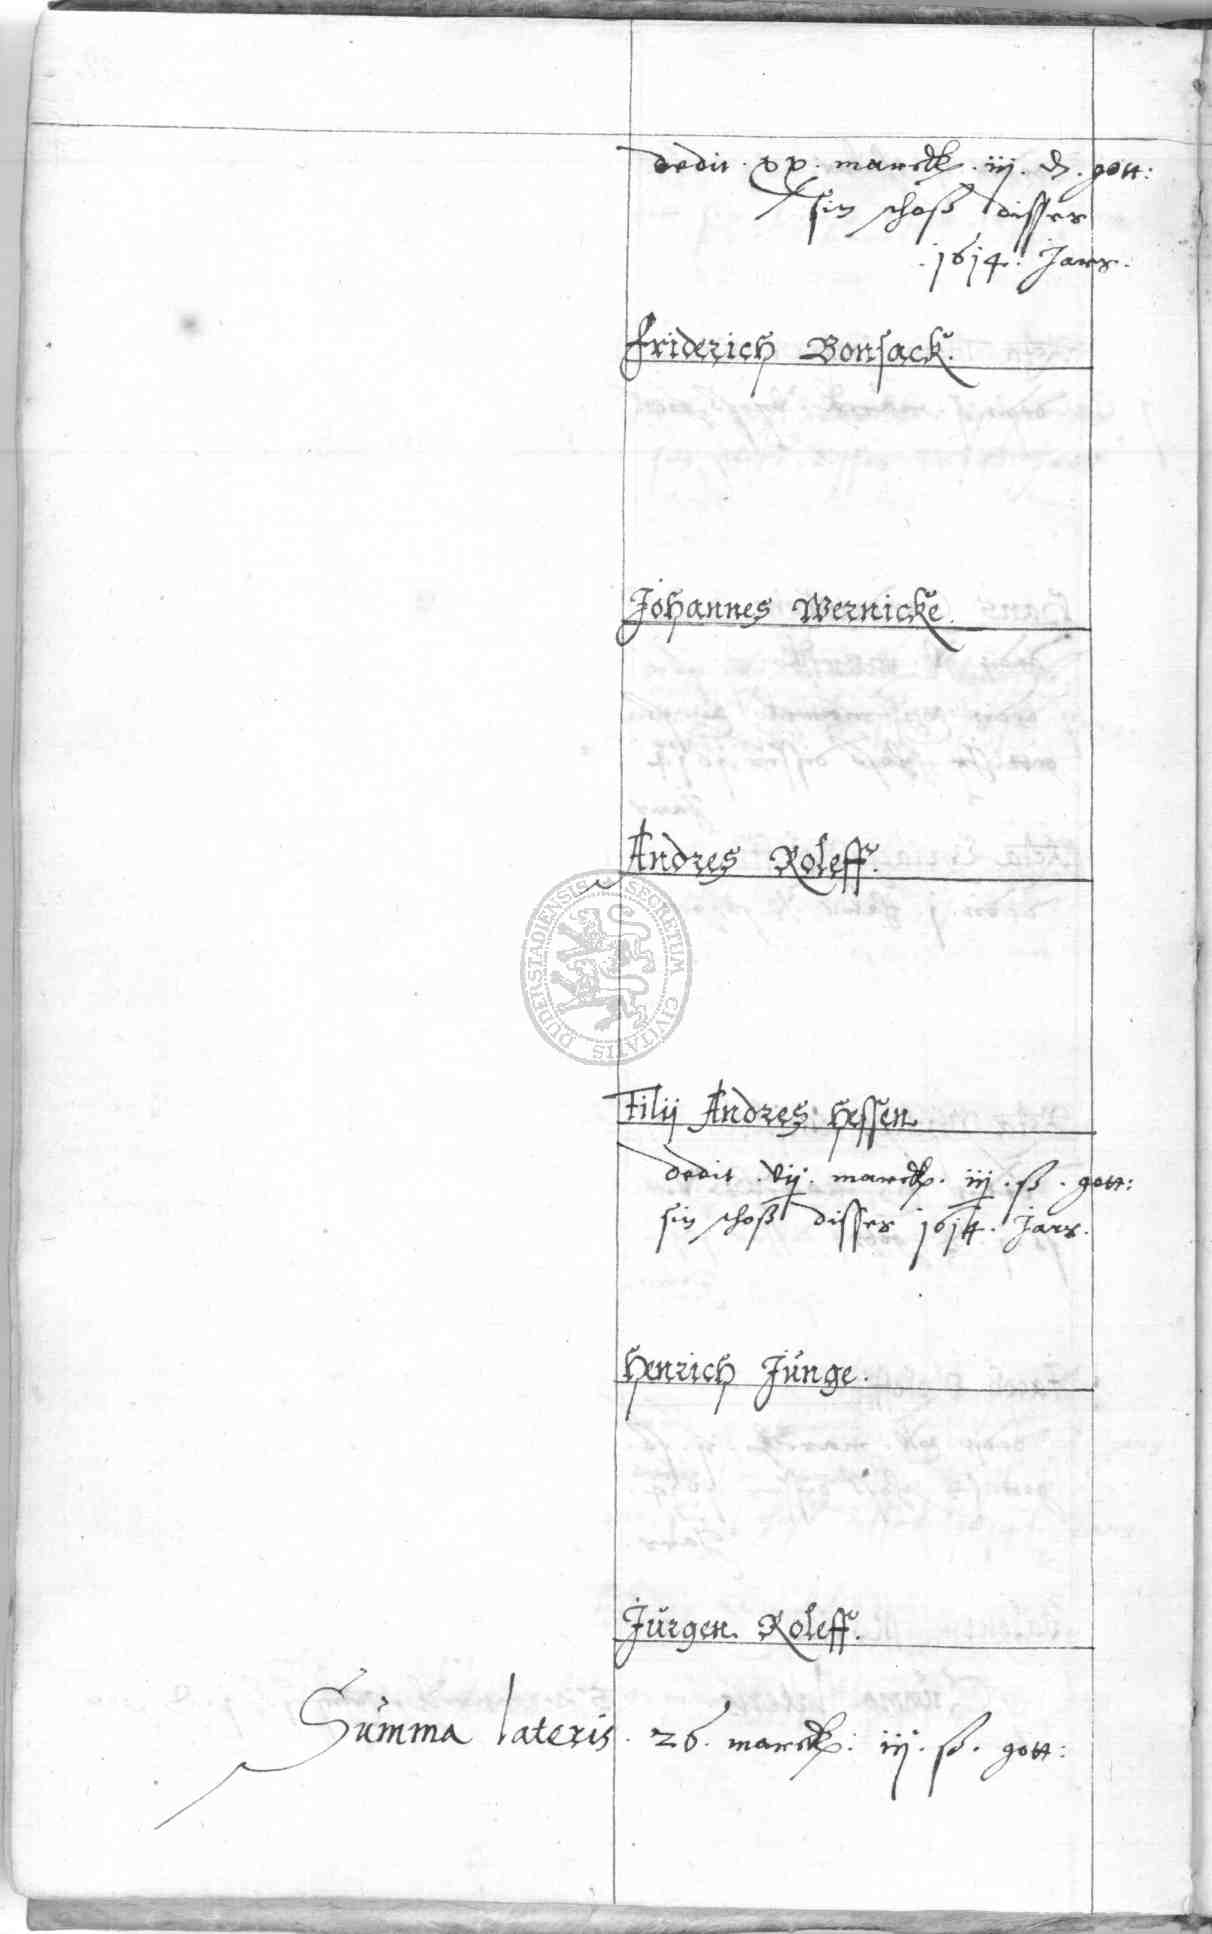 dedit . xx . marck . iij . ₰ . gott:
sin schoß disses
. 1614 . Jars .
Friderich Bonsack.
Johannes Wernicke.
Andres Roleff.
SECRETUM CIVITATIS DUDERSTADIENSIS
Filij Andres Hessen
dedit . vij . marck . iij . ß . gott:
sin schoß disses 1614 . Jars .
Henrich Junge .
Jurgen Roleff .
Summa lateris . 26 . marck : iij . ß . gott :